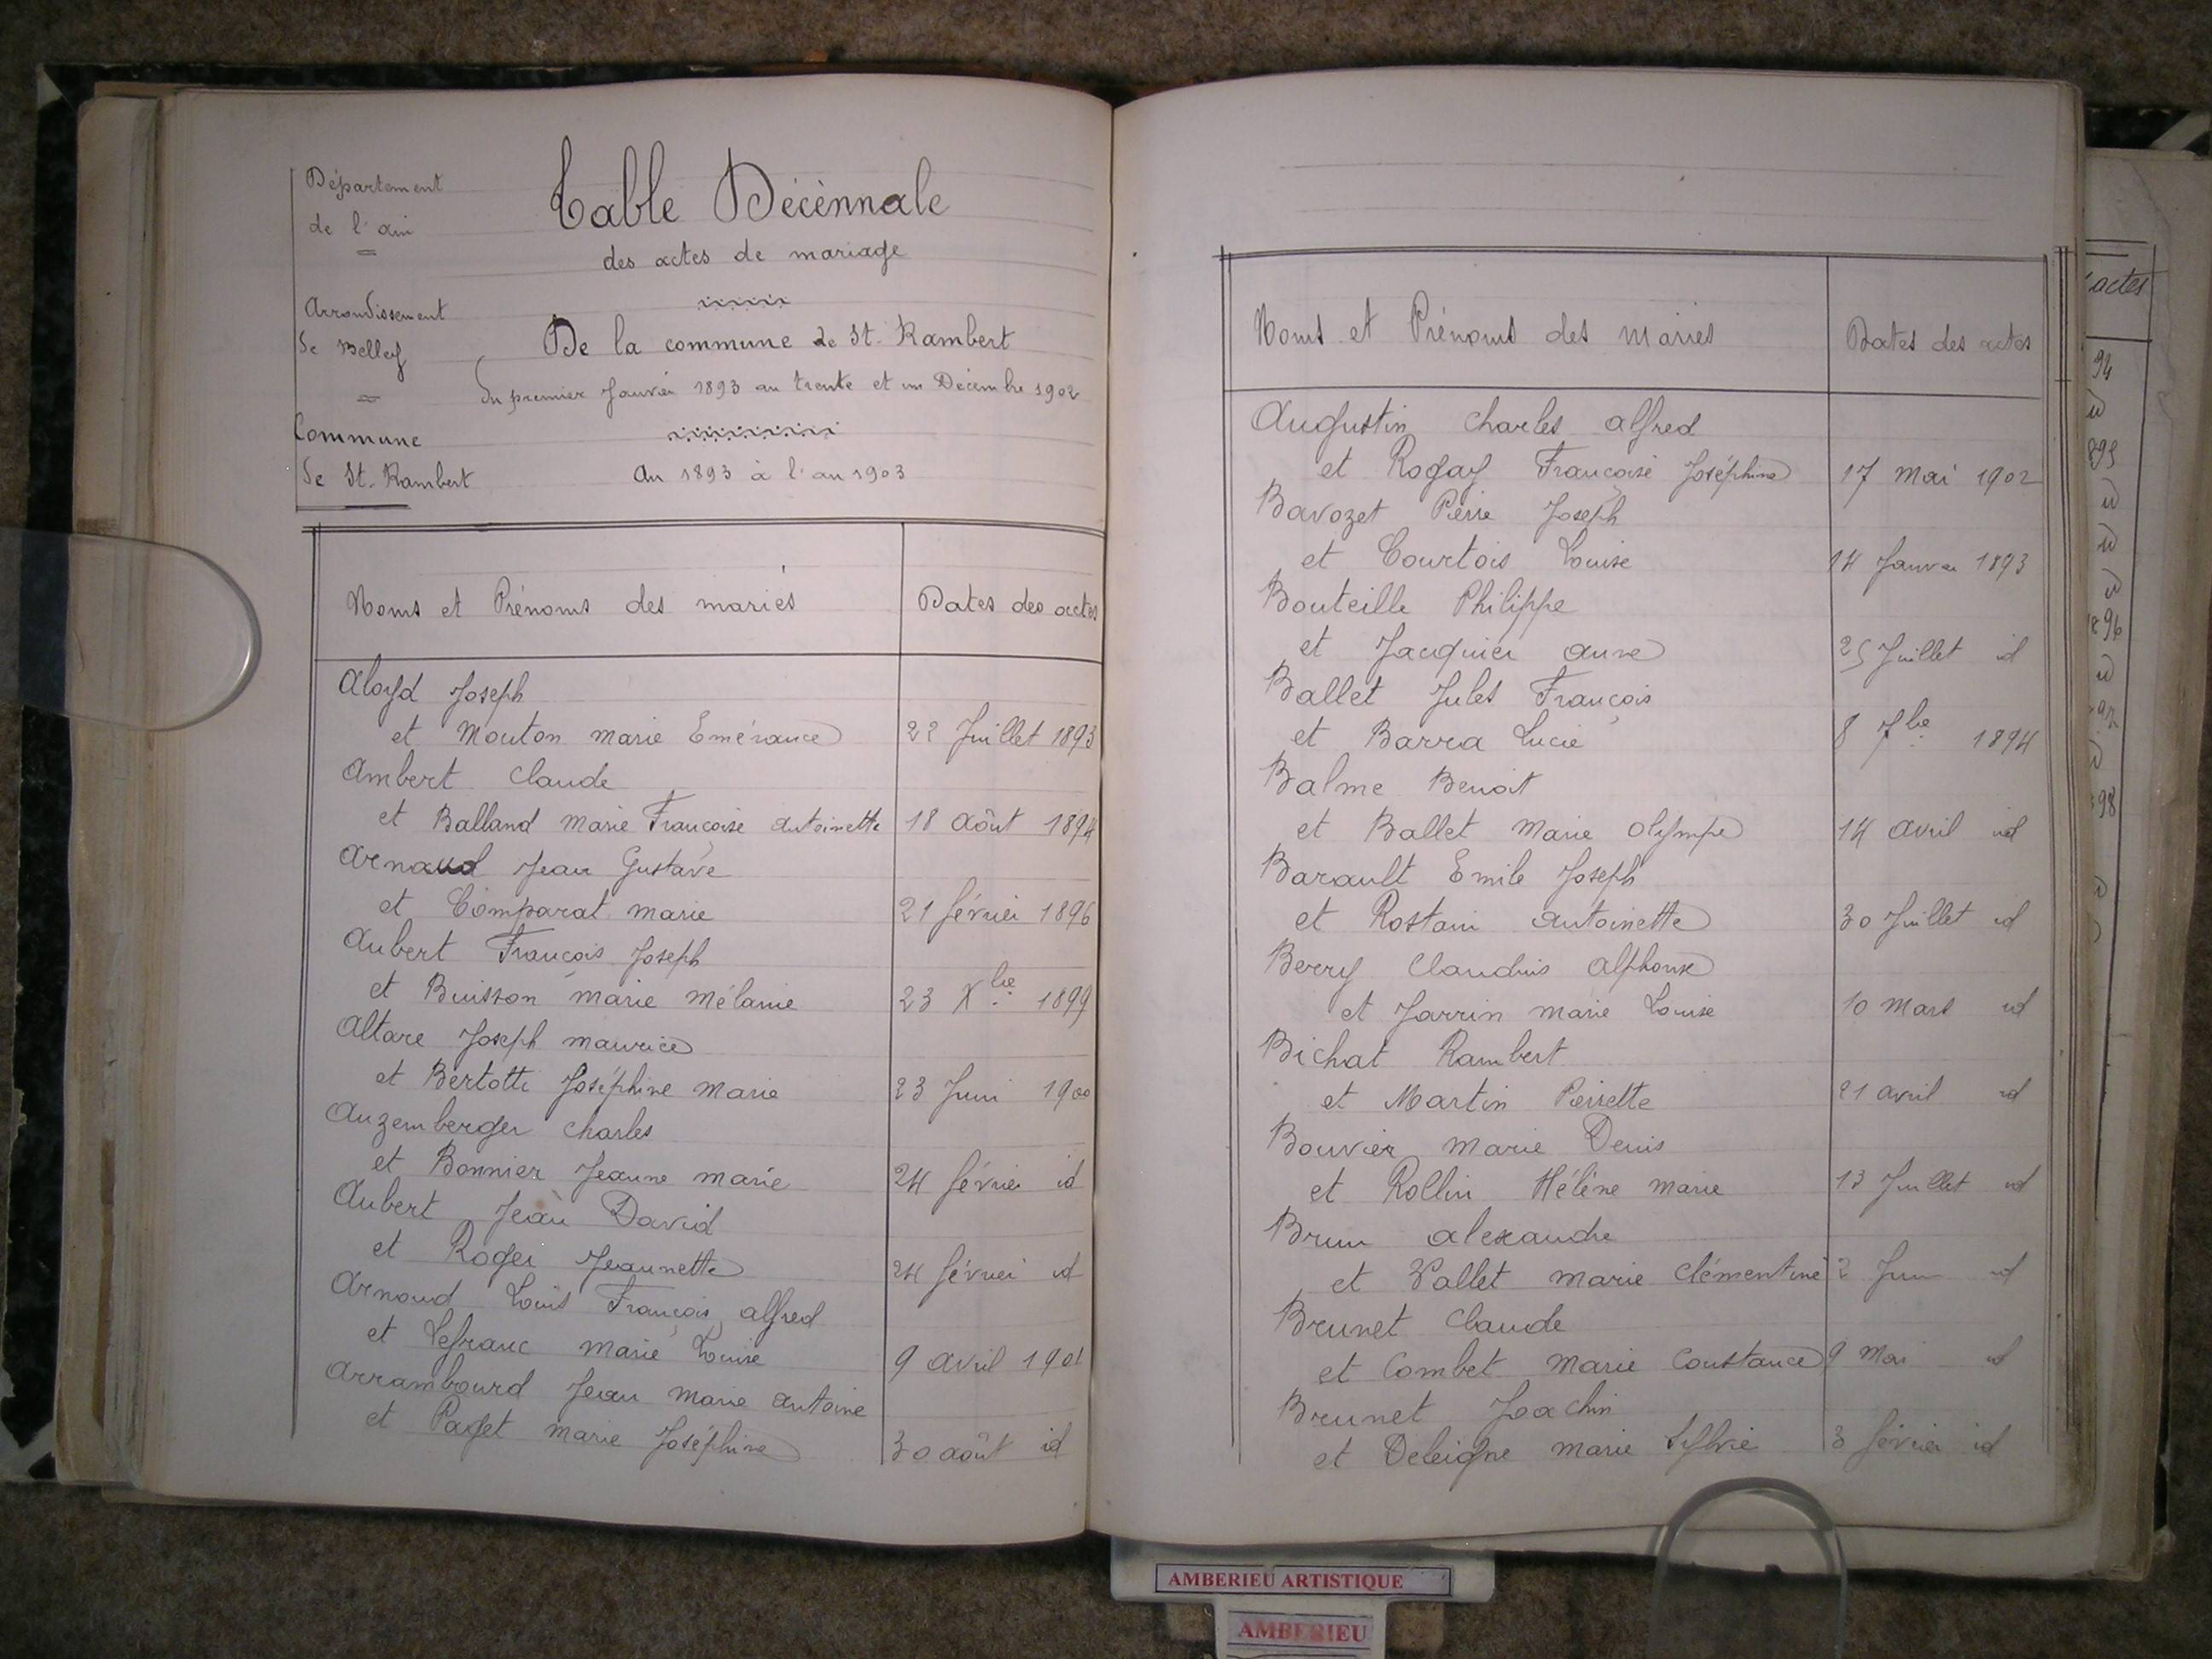 Département
de l'ain
Arrondissement
de Belley
Commune
de St. Rambert
Table Décènnale
des actes de mariage
De la commune de St. Rambert
du premier Janvier 1893 au trente et un Décembre 1902
An 1893 à l'an 1903
Noms et Prénoms des mariés
Dates des actes
Aloyd Joseph
et Mouton marie Emérance 22 Juillet 1893
Ambert Claude
et Balland Marie Françoise Antoinette 18 Août 1894
Arnaud Jean Gustave
et Comparat marie 21 février 1896
Aubert François Joseph
et Buisson marie Mélanie 23 Xbre 1899
Altare Joseph maurice
et Bertotti Joséphine Marie 23 Juin 1900
Auzemberger Charles
et Bonnier Jeanne marie 24 février id
Aubert Jean David
et Roger Jeannette 24 février id
Arnoud Louis François alfred
et Lefranc marie Louise 9 avril 1901
Arrambourd Jean Marie Antoine
et Payet marie Joséphine 30 août id
Noms et Prénoms des Mariés
Dates des actes
Augustin Charles alfred
et Rogay Françoise Joséphine 17 Mai 1902
Bavozet Pierre Joseph
et Courtois Louise 14 Janvier 1893
Bouteille Philippe
et Jacquier anne 25 Juillet id
Ballet Jules François
et Barra Lucie 8 7bre 1894
Balme Benoit
et Ballet Marie Olympe 14 avril id
Barault Emile Joseph
et Rostain Antoinette 30 Juillet id
Berry Claudius Alphonse
et Jarrin marie Louise 10 Mars id
Bichat Rambert
et Martin Pierrette 21 avril id
Bouvier Marie Denis
et Rollin Hélène marie 13 Juillet id
Brun alexandre
et Vallet marie Clémentine 2 Juin id
Brunet Claude
et Combet Marie Constance 9 Mai id
Brunet Joachin
et Deleigne marie Sylvie 3 février id
actes
94
id
895
id
id
id
896
id
id
98
AMBERIEU ARTISTIQUE
AMBERIEU